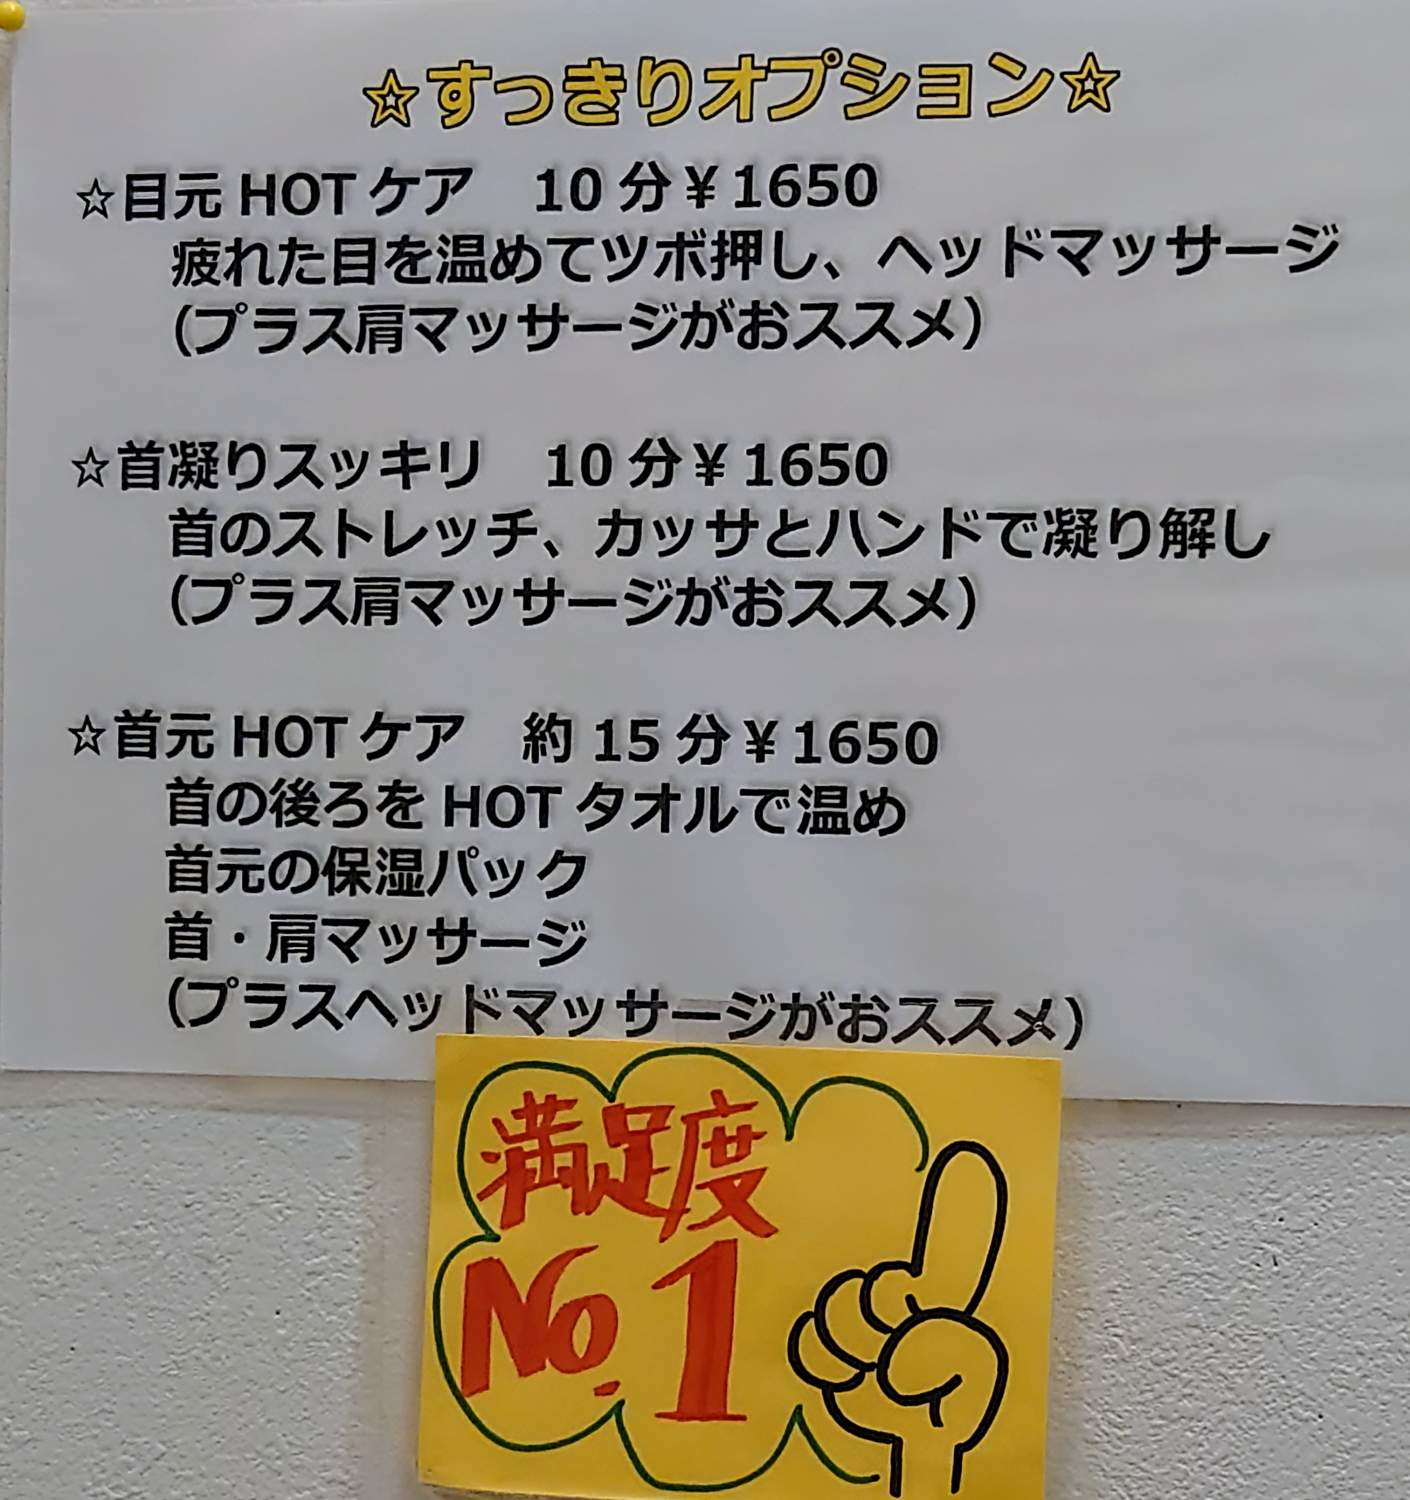 ☆すっきりオプション☆
☆目元HOTケア　10分¥1650
疲れた目を温めてツボ押し、ヘッドマッサージ
(プラス肩マッサージがおススメ)
☆首凝りスッキリ　10分¥1650
首のストレッチ、カッサとハンドで凝り解し
(プラス肩マッサージがおススメ)
☆首元HOTケア　約15分¥1650
首の後ろをHOTタオルで温め
首元の保湿パック
首・肩マッサージ
(プラスヘッドマッサージがおススメ)
満足度
No.1